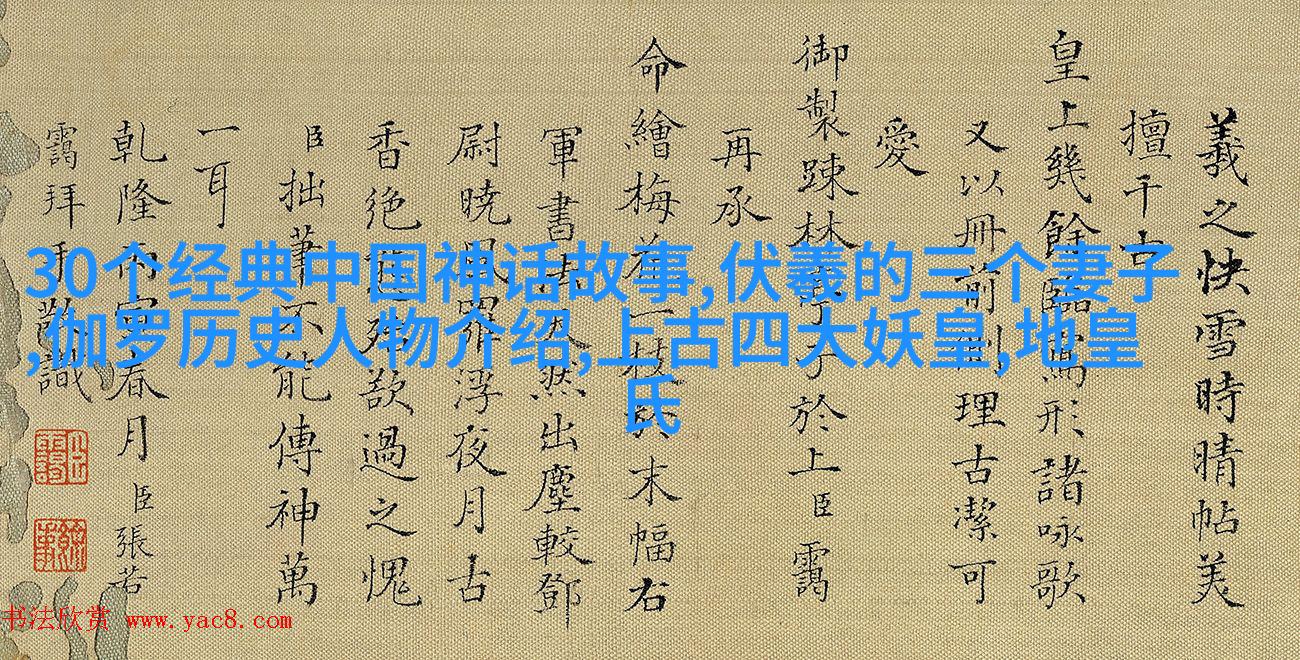 羲之快雪時晴帖美
擅千古
皇上幾餘臨寫形諸詠歌
又以冊前側理古潔可
愛
御製踈林於上臣靄
再承
命繪梅花一枝於末幅右
軍書法天然出塵較鄧
尉曉風羅浮夜月古
香絶殊欲過之愧
臣拙筆不能傳神萬
一耳
乾隆丙寅春月臣張若
靄拜手敬識
30个经典中国神话故事,伏羲的三个妻子
,伽罗历史人物介绍,上古四大妖皇,地皇
氏
书法欣赏 www.yac8.com